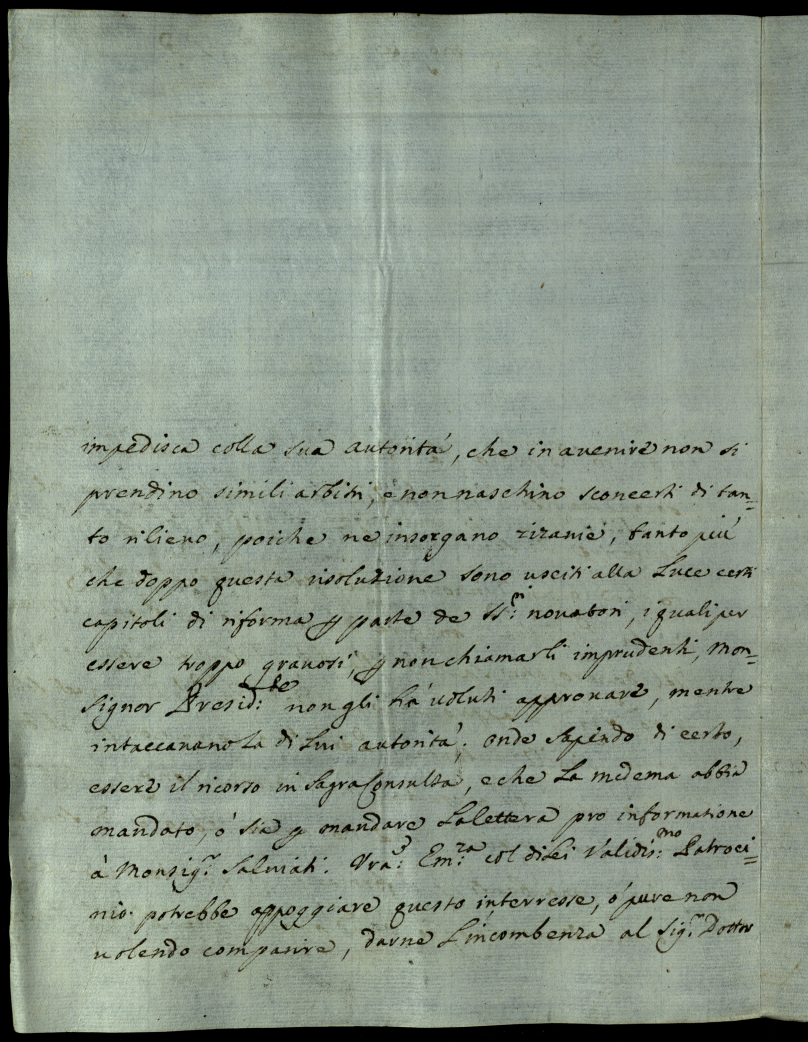 impedisca colla sua autorità, che in avenire non si
prendino simili arbitri, e non naschino sconcerti di tan=
to rilievo, poiche ne insorgano zizanie, tanto più
che doppo questa risoluzione sono usciti alla Luce certi
capitoli di riforma p parte de SS:ri novatori, i quali per
essere troppo gravosi, p non chiamarli imprudenti, Mon=
signor Presid:te non gli hà voluti approvare, mentre
intaccavano la di Lui autorità; onde sapendo di certo,
essere il ricorso in Sagra Consulta, e che La medema abbia
mandato, ò sia p mandare La lettera pro informatione
à Monsig.r Salviati. Vra: Em:za col di Lei Validis:mo Patroci=
nio potrebbe appoggiare questo interresse, ò pure non
volendo comparire, darne L'incombenza al Sig.r Dottor